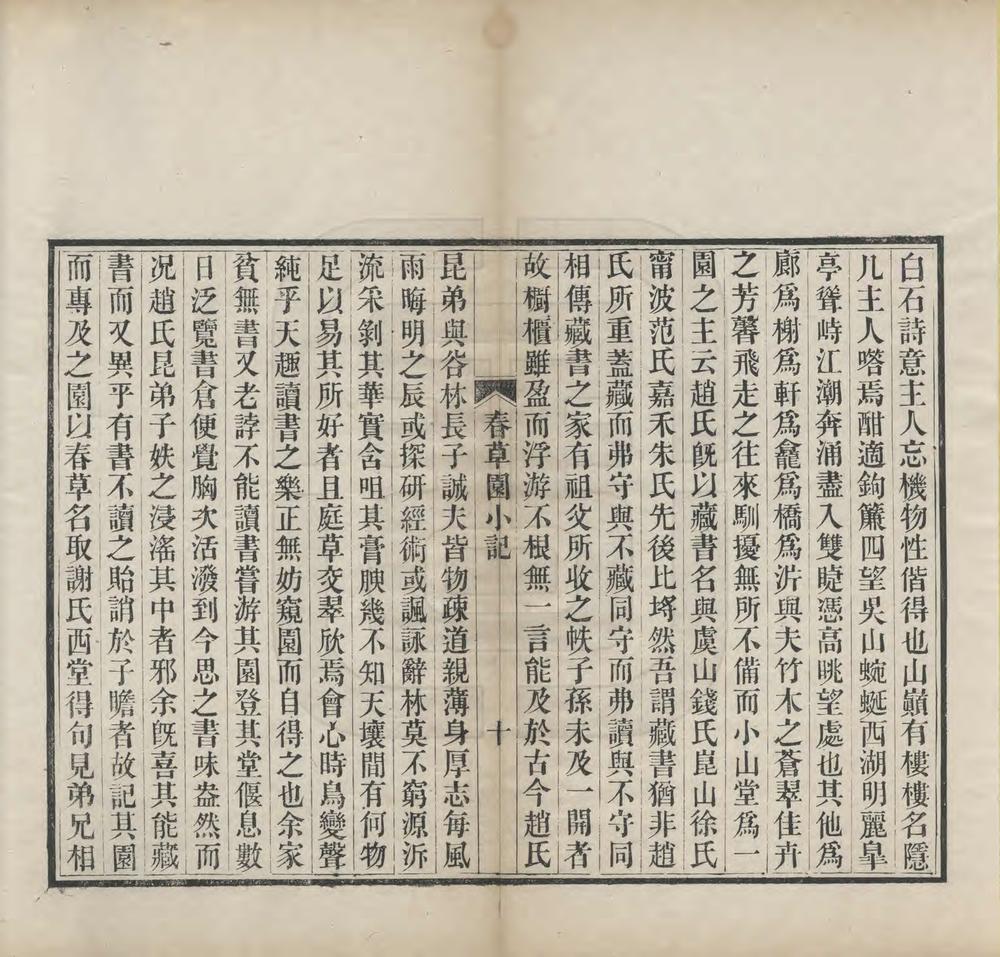 白石詩意主人忘機物性偕得也山巔有樓樓名隱
几主人嗒焉酣適鉤簾四望吳山蜿蜒西湖明麗臯
亭聳峙江潮奔涌盡入雙睫憑高眺望處也其他爲
廊爲榭爲軒爲龕爲橋爲沜與夫竹木之蒼翠佳卉
之芳馨飛走之往來馴擾無所不備而小山堂爲一
園之主云趙氏旣以藏書名與虞山錢氏崑山徐氏
甯波范氏嘉禾朱氏先後比埓然吾謂藏書猶非趙
氏所重蓋藏而弗守與不藏同守而弗讀與不守同
相傳藏書之家有祖父所收之帙子孫未及一開者
故櫥櫃雖盈而浮游不根無一言能及於古今趙氏
春草園小記
十
昆弟與谷林長子誠夫皆物疎道親薄身厚志每風
雨晦明之辰或探研經術或諷詠辭林莫不窮源泝
流釆剝其華實含咀其膏腴幾不知天壤間有何物
足以易其所好者且庭草交翠欣焉會心時鳥變聲
純乎天趣讀書之樂正無妨窺園而自得之也余家
貧無書又老誖不能讀書嘗游其園登其堂偃息數
日泛覽書倉便覺胸次活潑到今思之書味盎然而
况趙氏昆弟子姪之浸滛其中者邪余旣喜其能藏
書而又異乎有書不讀之貽誚於子瞻者故記其園
而專及之園以春草名取謝氏西堂得句見弟兄相